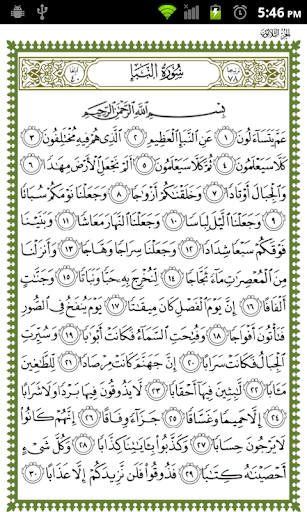 5:46 PM
الجزء الثلاثون
ترتيبها ٧٨
سُورَةُ النَّبَإِ
آياتها ٤٠
بِسْمِ اللَّهِ الرَّحْمَٰنِ الرَّحِيمِ
عَمَّ يَتَسَاءَلُونَ ١ عَنِ النَّبَإِ الْعَظِيمِ ٢ الَّذِي هُمْ فِيهِ مُخْتَلِفُونَ ٣
كَلَّا سَيَعْلَمُونَ ٤ ثُمَّ كَلَّا سَيَعْلَمُونَ ٥ أَلَمْ نَجْعَلِ الْأَرْضَ مِهَٰدًا ٦
وَالْجِبَالَ أَوْتَادًا ٧ وَخَلَقْنَٰكُمْ أَزْوَٰجًا ٨ وَجَعَلْنَا نَوْمَكُمْ سُبَاتًا
٩ وَجَعَلْنَا اللَّيْلَ لِبَاسًا ١٠ وَجَعَلْنَا النَّهَارَ مَعَاشًا ١١ وَبَنَيْنَا
فَوْقَكُمْ سَبْعًا شِدَادًا ١٢ وَجَعَلْنَا سِرَاجًا وَهَّاجًا ١٣ وَأَنزَلْنَا
مِنَ الْمُعْصِرَٰتِ مَاءً ثَجَّاجًا ١٤ لِّنُخْرِجَ بِهِ حَبًّا وَنَبَاتًا ١٥ وَجَنَّٰتٍ
أَلْفَافًا ١٦ إِنَّ يَوْمَ الْفَصْلِ كَانَ مِيقَٰتًا ١٧ يَوْمَ يُنفَخُ فِي الصُّورِ
فَتَأْتُونَ أَفْوَاجًا ١٨ وَفُتِحَتِ السَّمَاءُ فَكَانَتْ أَبْوَٰبًا ١٩ وَسُيِّرَتِ
الْجِبَالُ فَكَانَتْ سَرَابًا ٢٠ إِنَّ جَهَنَّمَ كَانَتْ مِرْصَادًا ٢١ لِّلطَّٰغِينَ
مَـَٔابًا ٢٢ لَّٰبِثِينَ فِيهَا أَحْقَابًا ٢٣ لَّا يَذُوقُونَ فِيهَا بَرْدًا وَلَا شَرَابًا
٢٤ إِلَّا حَمِيمًا وَغَسَّاقًا ٢٥ جَزَاءً وِفَاقًا ٢٦ إِنَّهُمْ كَانُوا
لَا يَرْجُونَ حِسَابًا ٢٧ وَكَذَّبُوا بِـَٔايَٰتِنَا كِذَّابًا ٢٨ وَكُلَّ شَيْءٍ
أَحْصَيْنَٰهُ كِتَٰبًا ٢٩ فَذُوقُوا فَلَن نَّزِيدَكُمْ إِلَّا عَذَابًا ٣٠